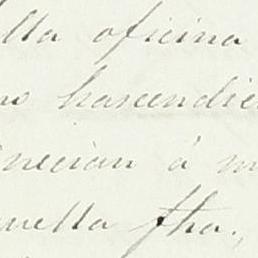 lla oficina
no hascendie
necian á m
uella fha.,